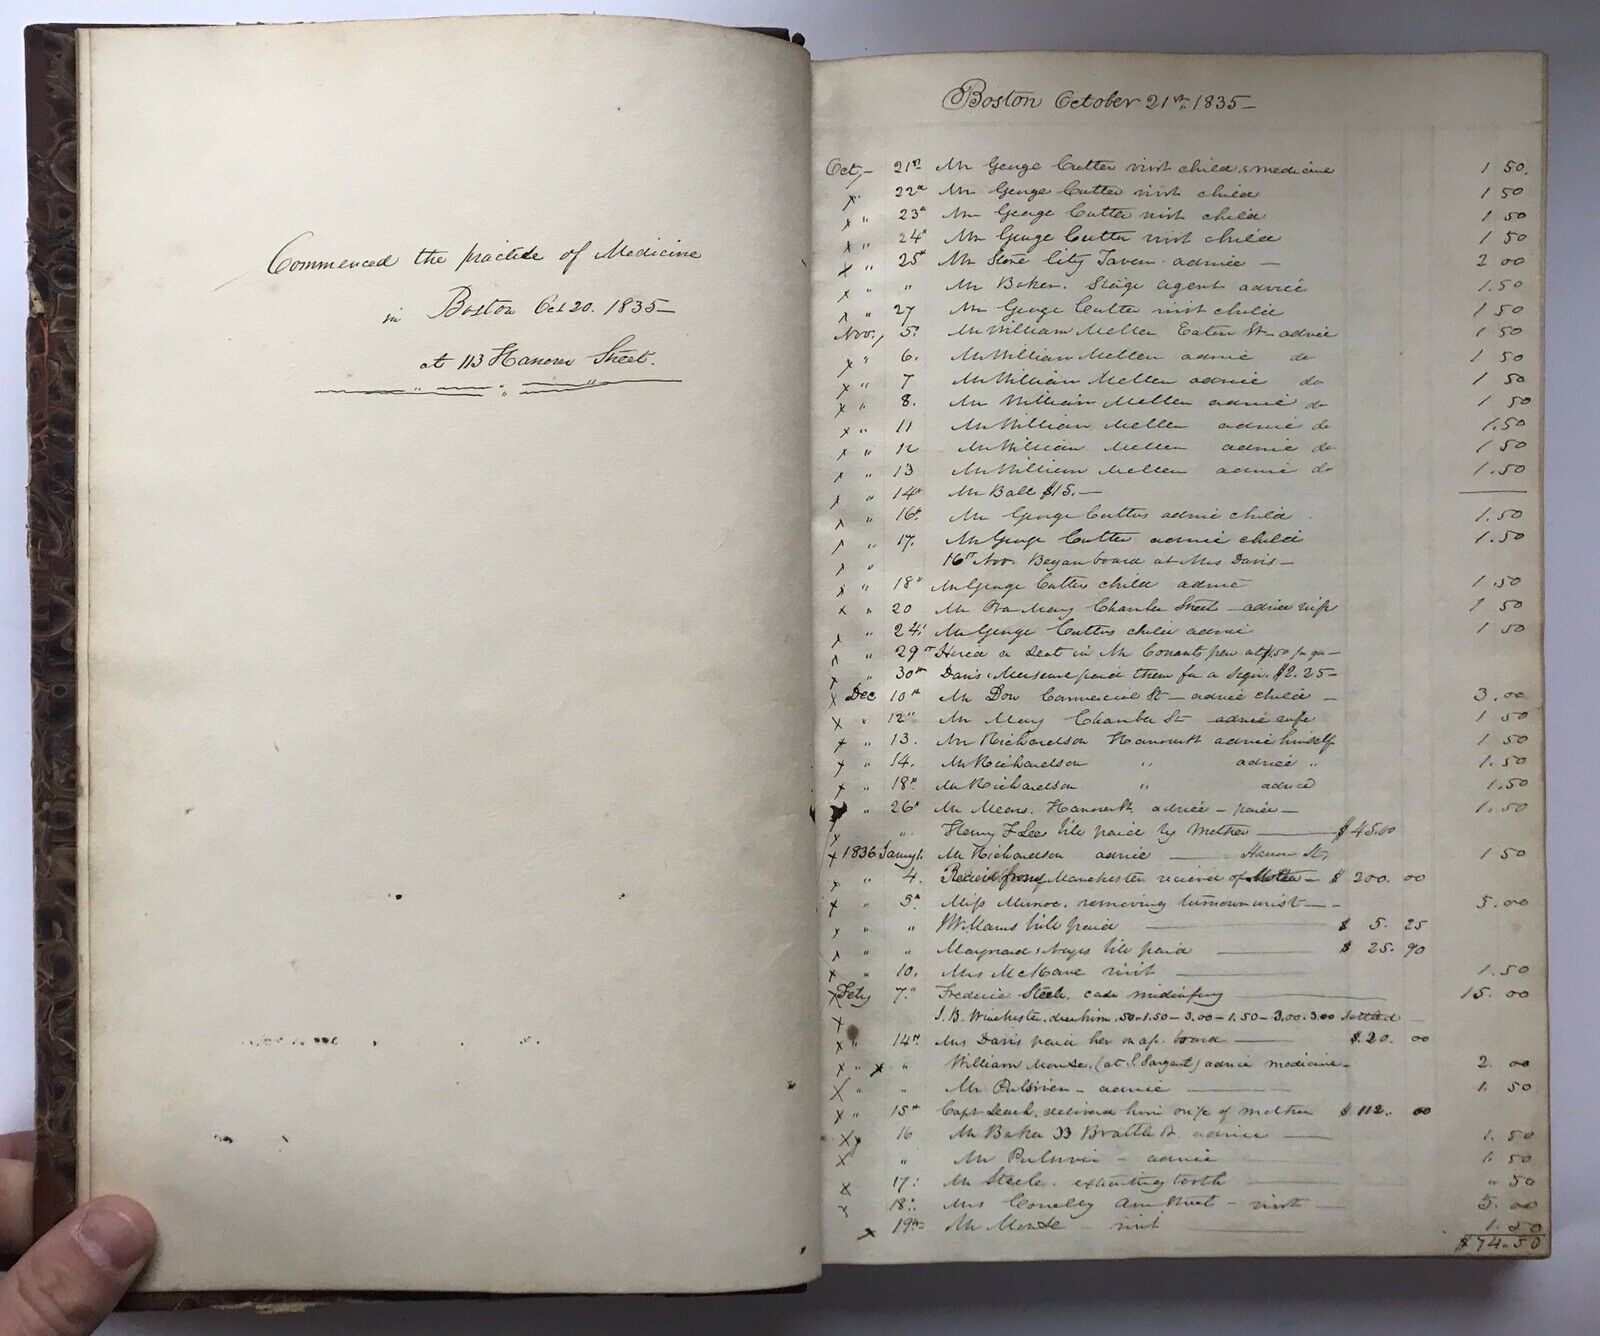 Commenced the practice of Medicine
in Boston Oct 20. 1835 —
at 113 Hanover Street.
Boston October 21st. 1835 —
Oct, - 21st Mr George Cutter visit child & medicine 1 50.
x 22d Mr George Cutter visit child 1 50
x " 23d Mr George Cutter visit child 1 50
x " 24th Mr George Cutter visit child 1 50
x " 25th Mr Stone City Tavern - advice — 2 00
x " " Mr Baker. Stage agent advice 1.50
x " 27 Mr George Cutter visit child 1 50
Nov., 5. Mr William Mellen Eaton St - advice 1 50
x " 6. Mr William Mellen advice do 1 50
x " 7 Mr William Mellen advice do 1 50
x " 8. Mr William Mellen advice do 1 50
x " 11 Mr William Mellen advice do 1.50
x " 12 Mr William Mellen advice do 1 50
x " 13 Mr William Mellen advice do 1.50
x " 14th Mr Ball $15. —
x " 16th. Mr George Cutters advice child 1.50
x " 17. Mr George Cutter advice child 1.50
x " 16th Nov. Began board at Mrs Davis —
x " 18th Mr George Cutters child advice 1.50
x " 20 Mr May Chamber Street - advice wife 1 50
" 24. Mr George Cutters child advice 1 50
x " 29th Hired a seat in Mr Conants pew at $1.50
x " 30th Davis paid them for a sign. $2.25 —
x Dec 10th Mr Dow Commercial St - advice child - 3.00
x " 12th Mr May Chamber St advice wife 1 50
x " 13. Mr Richardson Hanover St advice himself 1 50
x " 14. Mr Richardson " advice " 1.50
x " 18th Mr Richardson " advice 1.50
" 26th Mr Mears. Hanover St. advice - paid - 1.50
x " Henry F Lee bill paid by Mother — $45.00
x 1836 Jany 1. Mr Richardson advice — Hanover St, 1 50
x " 4. Manchester received of Mother — $ 200. 00
x " 5th Miss Munroe, removing tumour wrist — - 5.00
x " " bill paid — $ 5. 25
x " " Maynard & Noyes bill paid — $ 25. 90
x " 10. Mrs McKane visit — 1.50
x Feby 7. Frederic Steele. case midwifery — 15. 00
x J. B. Winchester. due him .50-1.50-3.00-1.50-3.00.3.00 Settled —
x " 14th. Mrs Davis paid her on a/c. board — $.20. 00
x " x " William Monroe. (at S. Sargent) advice medicine - 2. 00
x " " Mr Pulsiver - advice — 1. 50
x " 15th Capt Leach. delivered him on a/c of mother $ 112. 00
x 16 Mr Baker 33 Brattle St. advice — 1. 50
x " Mr Pulsiver - advice 1. 50
x 17: Mr Steele. extracting tooth — " 50
x 18: Mrs Conelly Ann Street - visit - 5. 00
x 19th — Mr Monroe - visit 1. 50
$74.50